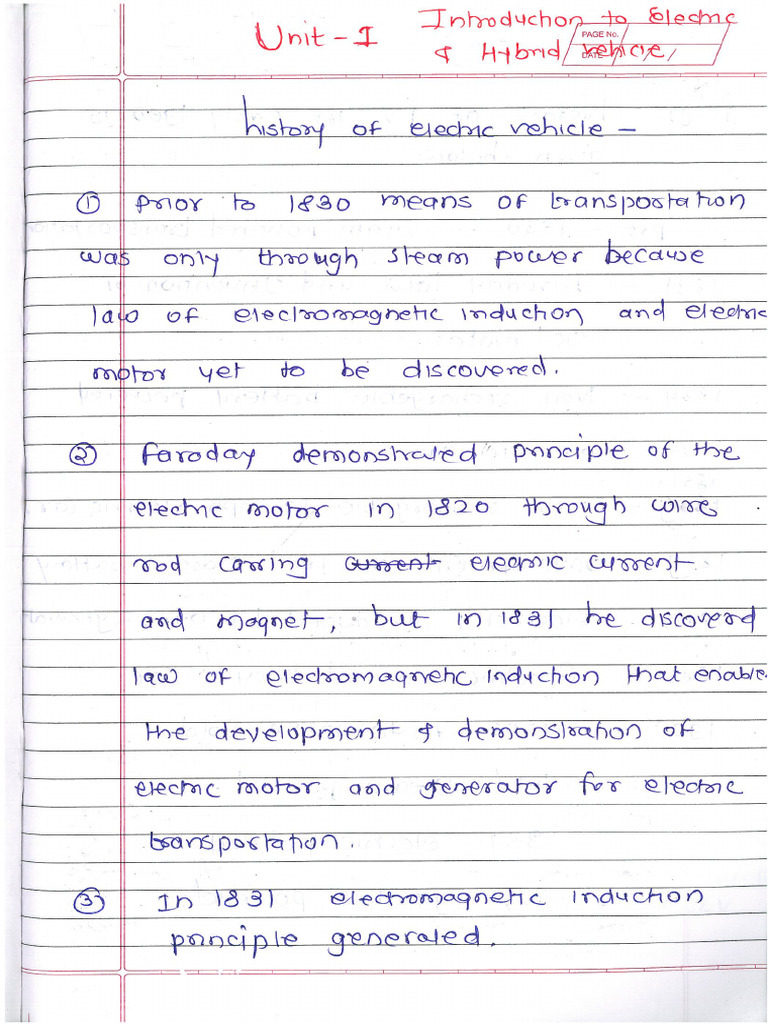 Unit - I Introduction to Electric
PAGE No.
DATE
& Hybrid vehicle,
history of electric vehicle -
① prior to 1830 means of transportation
was only through steam power because
law of electromagnetic induction and electric
motor yet to be discovered.
② faroday demonstrated principle of the
electric motor in 1820 through wire
rod carring current electric current
and magnet, but in 1831 he discovered
law of electromagnetic induction that enable
the development & demonstration of
electric motor and generator for electric
transportation.
③ In 1831 electromagnetic induction
principle generated.